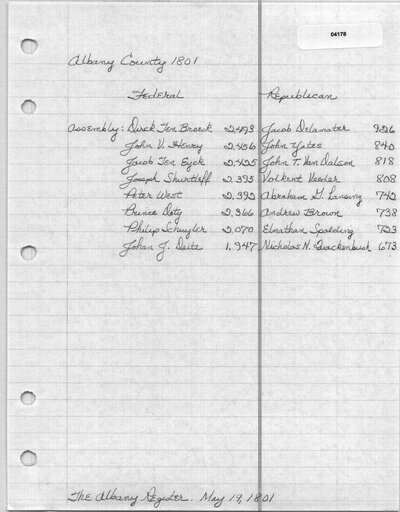 04178
Albany County 1801
Federal Republican
Assembly: Dirck Ten Broeck 2,493 Jacob Delamater 926
John V. Henry 2,456 John Yates 840
Jacob Ten Eyck 2,425 John T. Van Dalson 818
Joseph Shurtleff 2,395 Volkert Veeder 808
Peter West 2,392 Abraham G. Lansing 742
Prince Doty 2,366 Andrew Brown 738
Philip Schuyler 2,070 Elnathan Spalding 723
Johan J. Deitz 1,947 Nicholas N. Quackenbush 673
The Albany Register. May 19, 1801